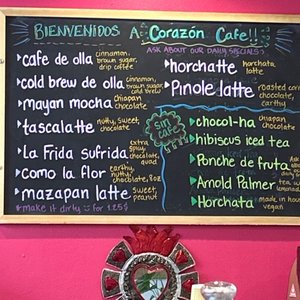 BIENVENIDOS A Corazón Cafe!!
ASK ABOUT OUR DAILY SPECIALS
cafe de olla cinnamon, brown sugar, drip coffee
cold brew de olla cinnamon, brown sugar, cold brew
mayan mocha chiapan chocolate
tascalatte nutty, sweet, chocolate
La Frida sufrida extra spicy, chocolate, quad
como la flor earthy, nutty, chocolate, 8oz
mazapan latte sweet, peanut
*make it dirty :) for 1.25$
horchatte horchata latte
Pinole latte roasted corn, chocolate, earthy
SIN CAFE
chocol-ha chiapan chocolate
hibiscus iced tea
Ponche de fruta
Arnold Palmer
Horchata made in house vegan